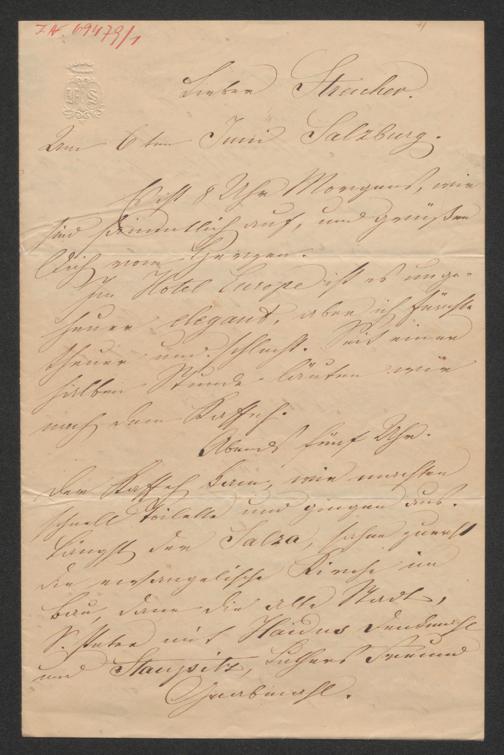 I.N. 69479/1
Lieber Streicher.
Den 6ten Juni Salzburg.
Es ist 8 Uhr Morgens, wir
sind sämmtlich auf, und grüßen
Dich von Herzen.
Im Hotel Europe ist es unge-
heuer elegant, aber ich fürchte
theuer und schlecht. Seit einer
halben Stunde läuten wir
nach dem Kaffeh.
Abends fünf Uhr.
Der Kaffeh kam, wir machten
schnell Toilette und gingen aus.
Längst der Salza, sahen zuerst
die evangelische Kirche im
Bau, dann die alte Stadt,
S. Peter mit Haidns Denkmahl
und Staupitz, Luthers Freund
Grabmahl.